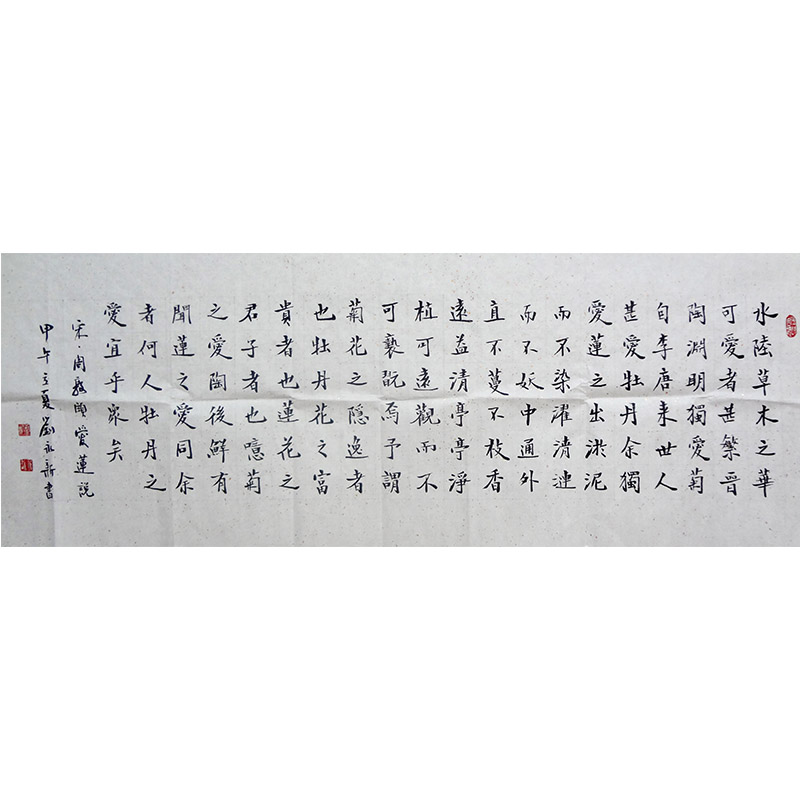 水陸草木之華
可愛者甚繁晉
陶淵明獨愛菊
自李唐来世人
甚愛牡丹余獨
愛蓮之出淤泥
而不染濯清漣
而不妖中通外
直不蔓不枝香
遠益清亭亭淨
植可遠觀而不
可褻翫焉予謂
菊花之隱逸者
也牡丹花之富
貴者也蓮花之
君子者也噫菊
之愛陶後鮮有
聞蓮之愛同余
者何人牡丹之
愛宜乎衆矣
宋·周敦頤愛蓮説
甲午立夏劉永新書